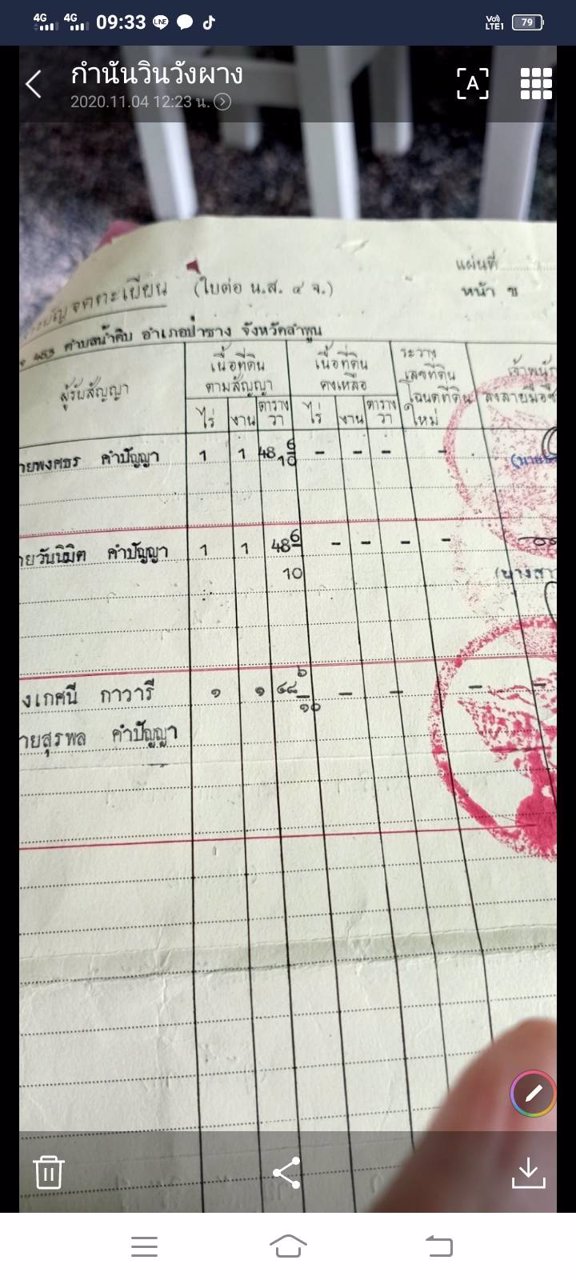 4G 4G 09:33 LINE VoD LTE1 79
กำนันวินวังผาง
2020.11.04 12:23 น.
A
แผ่นที่
สารบัญจดทะเบียน (ใบต่อ น.ส. ๔ จ.) หน้า ข
483 ตำบลน้ำดิบ อำเภอป่าซาง จังหวัดลำพูน
ผู้รับสัญญา
เนื้อที่ดิน ตามสัญญา
เนื้อที่ดิน คงเหลือ
ระวาง เลขที่ดิน โฉนดที่ดิน ใหม่
ลงลายมือชื่อ
ไร่ งาน ตารางวา ไร่ งาน ตารางวา
ายพงศธร คำปัญญา 1 1 48 6/10 - - - -
ายวันนิมิต คำปัญญา 1 1 48 6/10 - - - -
งเกศนี กาวารี ๑ ๑ ๔๘ ๖/๑๐ - - - -
ายสุรพล คำปัญญา